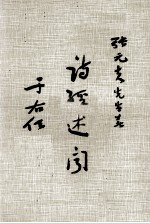 張元夫先生著
詩經述聞
于右任